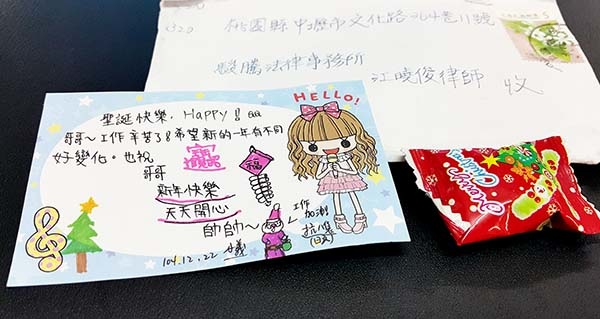 320
桃園縣中壢市文化路
號
法律事務所
江曉俊律師 收
HELLO!
聖誕快樂,Happy!!
哥哥~工作辛苦了!希望新的一年有不同
好變化。也祝
哥哥
新年快樂
天天開心
帥帥~
工作
加油
104.12.22
Merry
Christmas